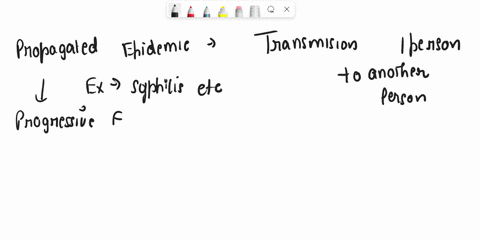 Propagated Epidemic → Transmision 1 person
to another
person
↓ Ex → Syphilis etc
Progressive E